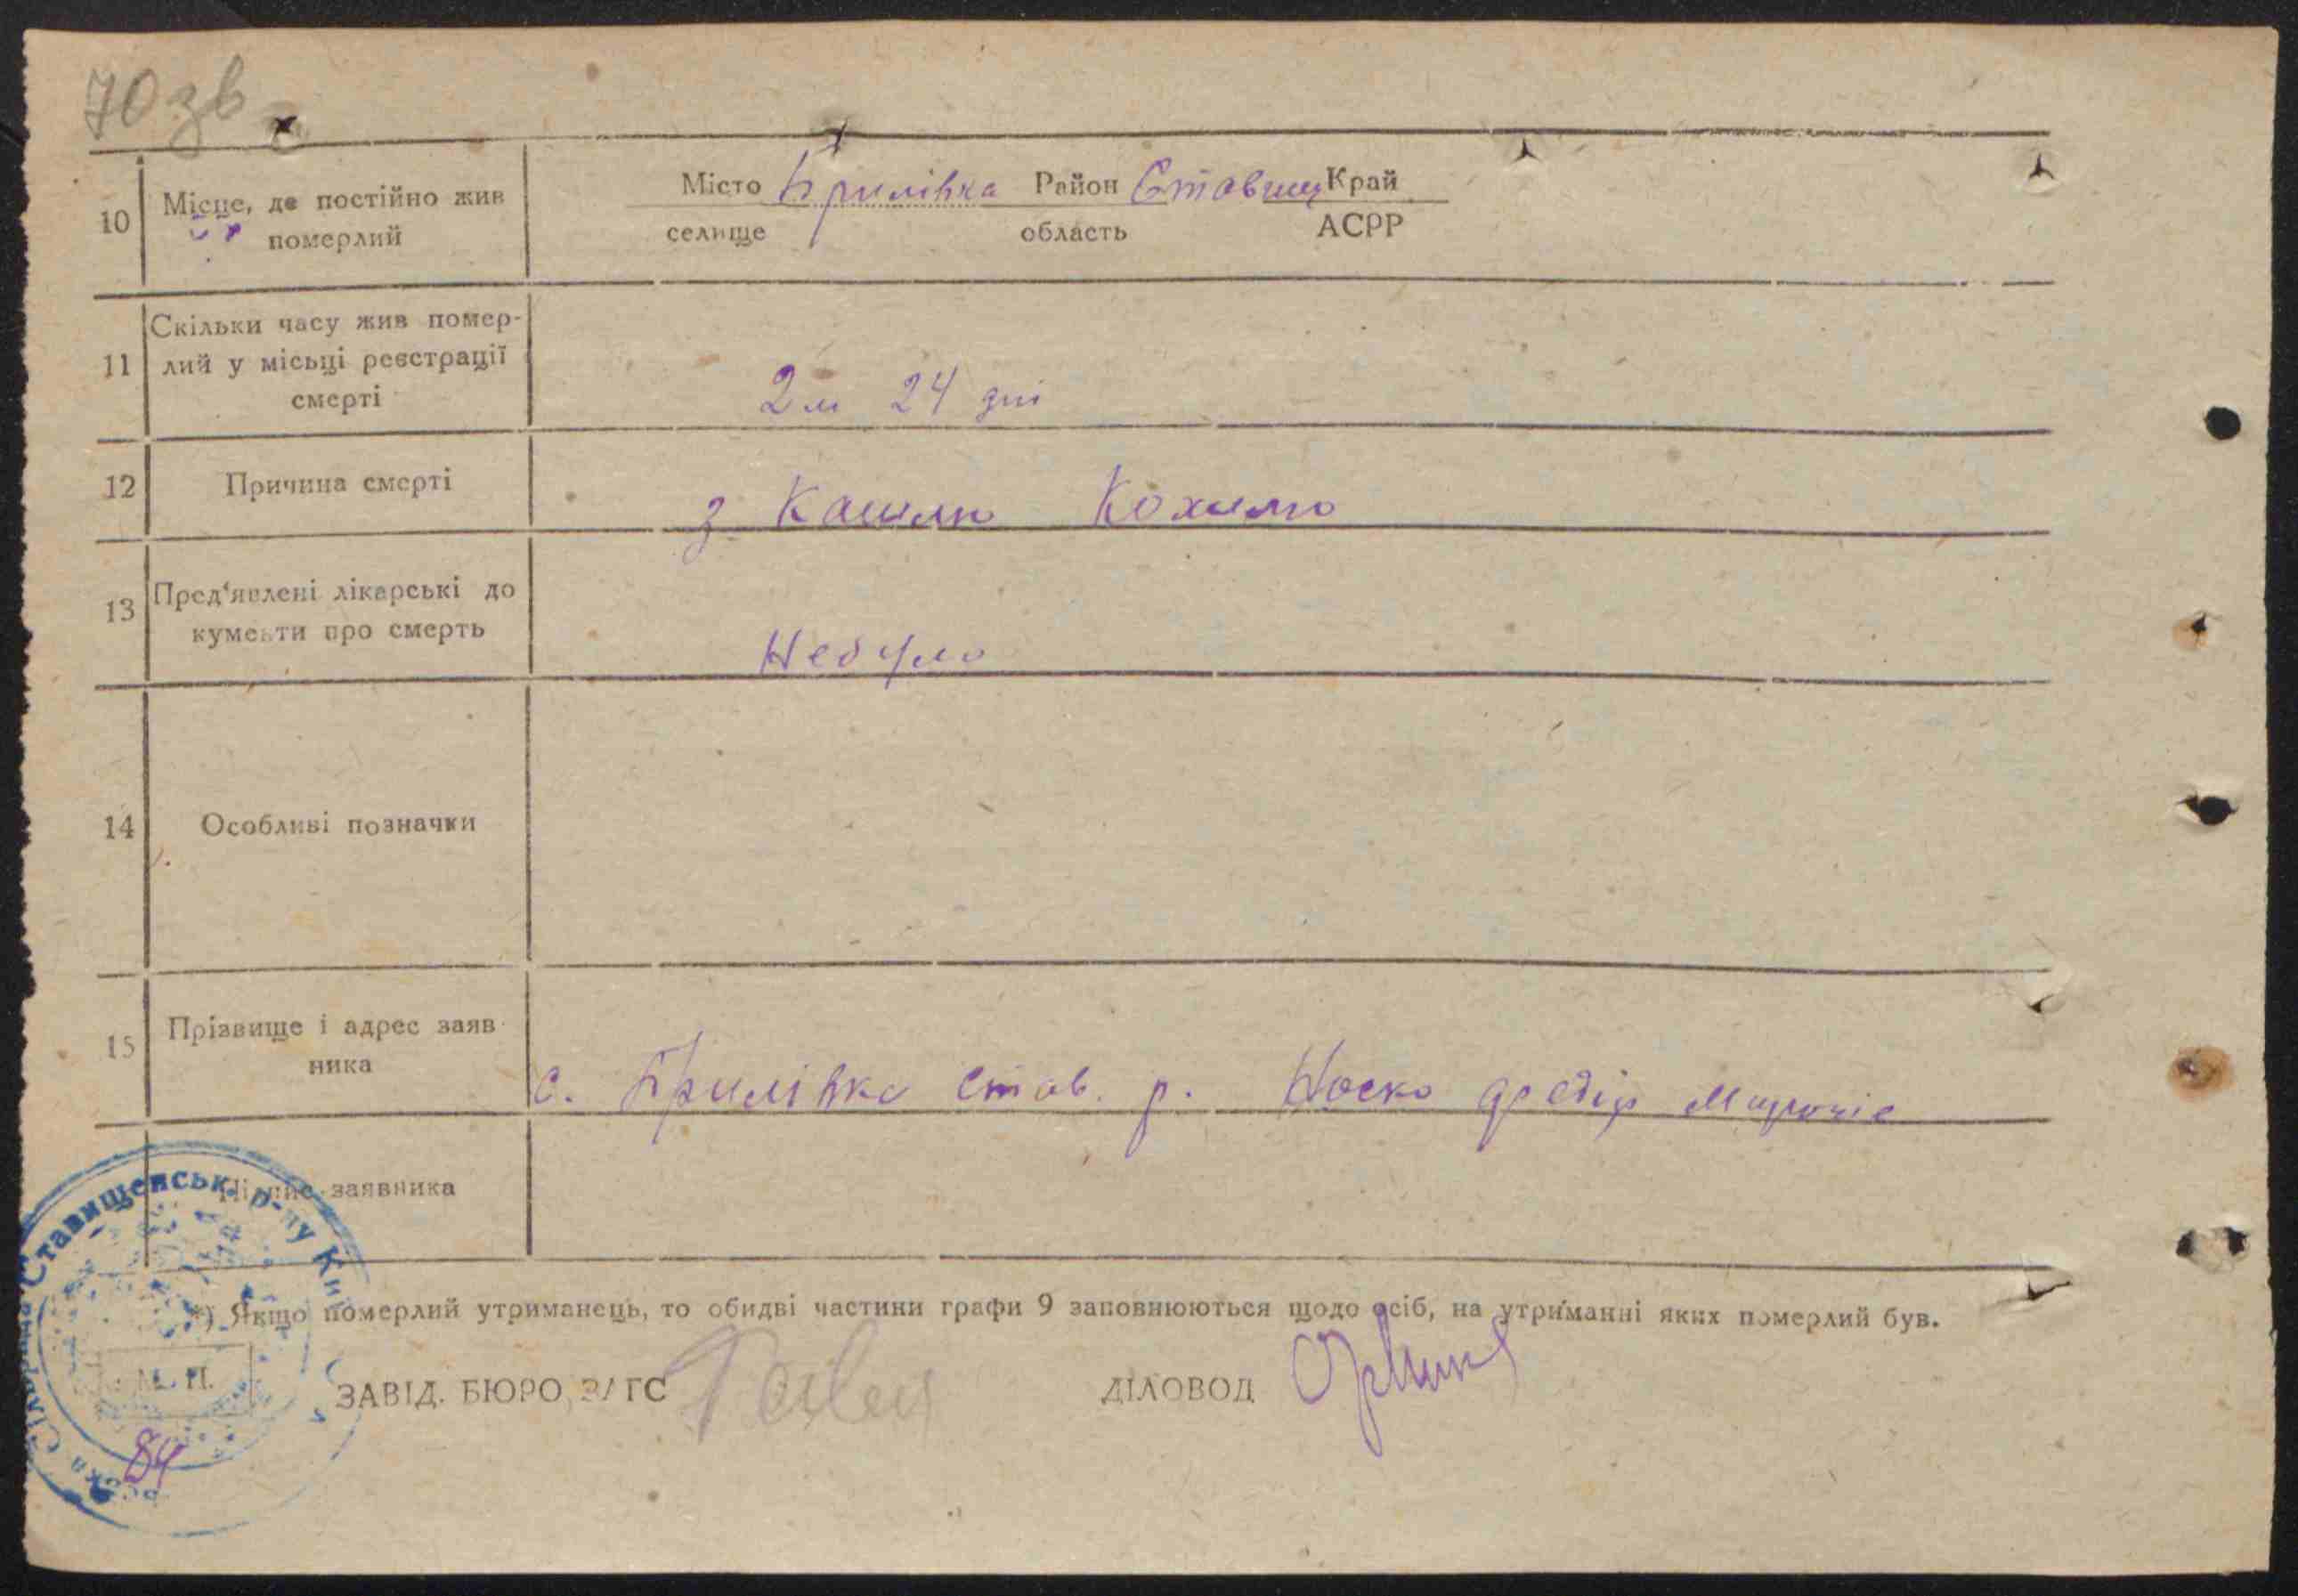 70 зв
10 Місце, де постійно жив померлий
Місто Брилівка Район Ставищ Край
селище область АСРР
11 Скільки часу жив помер-
лий у місьці реєстрації
смерті
2 м 24 дні
12 Причина смерті
з Кашлю Кохлию
13 Пред'явлені лікарські до
кументи про смерть
Небуло
14 Особливі позначки
15 Прізвище і адрес заяв
ника
с. Брилівка Став. р. Носко Федір
Підпис заявника
Ставищенськ. р-ну Ки
*) Якщо померлий утриманець, то обидві частини графи 9 заповнюються щодо осіб, на утриманні яких померлий був.
М. П.
ЗАВІД. БЮРО ЗАГС
ДІЛОВОД
84